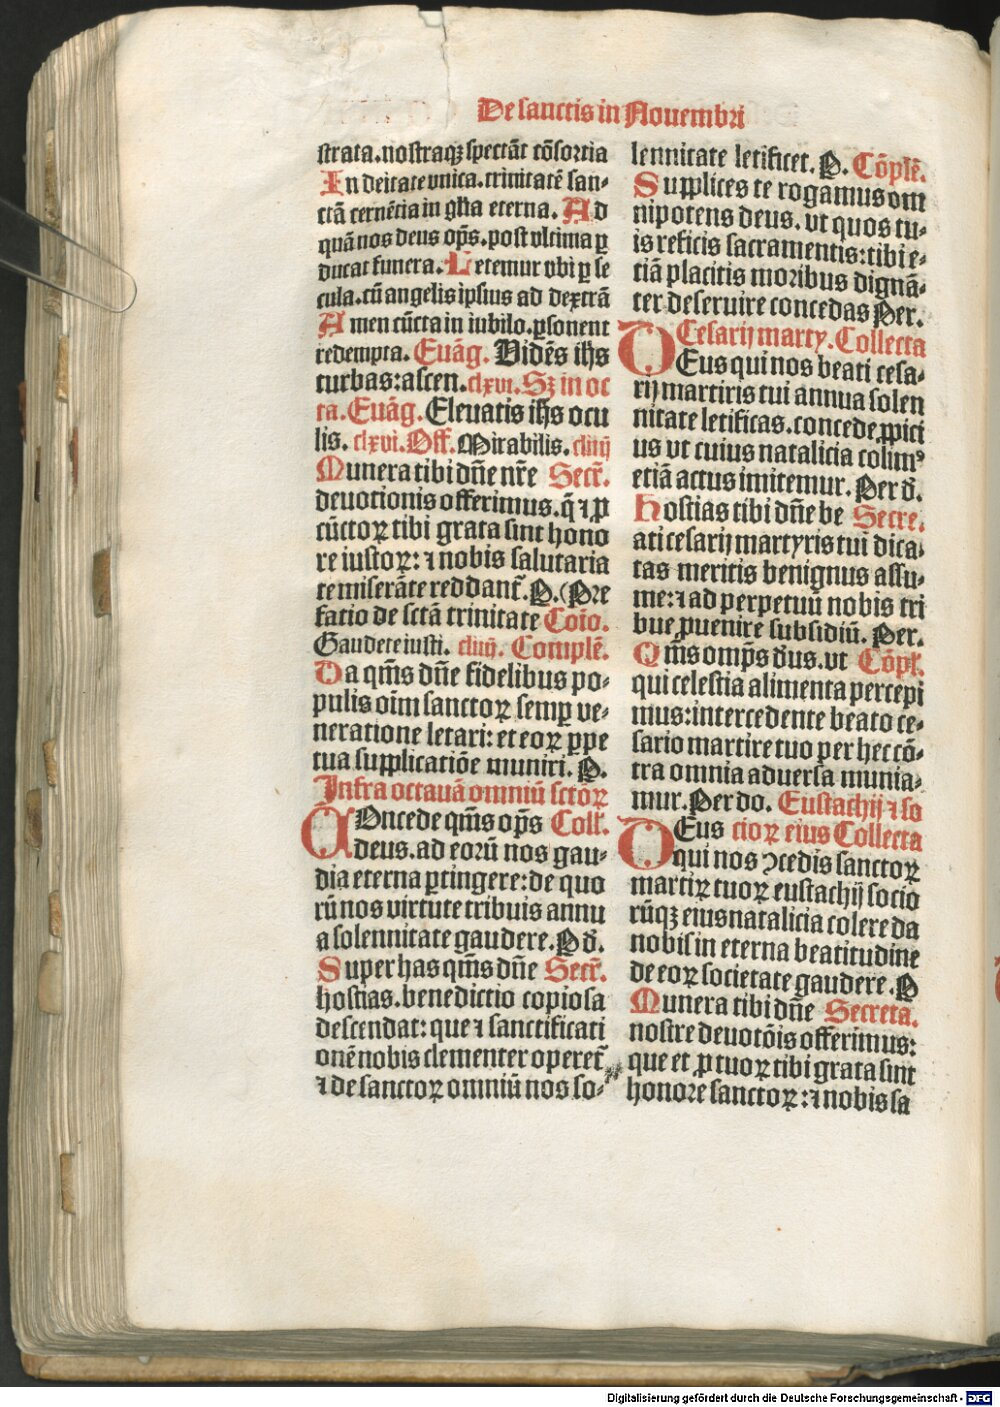 De sanctis in Nouembri
strata.nostraqꝫ spectāt cōsortia
In deitate vnica.trinitatē san-
ctā cernētia in gl̄ia eterna. Ad
quā nos deus op̄s.post vltima ꝑ
ducat funera. Letemur vbi ꝑ se
cula.cū angelis ipsius ad dextrā
Amen cūcta in iubilo.ꝑsonent
redempta. Euāg. Vidēs ihs
turbas: ascen. clxvi. Sꝫ in oc
ta. Euāg. Eleuatis ihs ocu
lis. clxvi. Off. Mirabilis. cliiij
Munera tibi dn̄e nr̄e Secr̄.
deuotionis offerimus.q̄ ⁊ ꝓ
cūctoꝝ tibi grata sint hono
re iustoꝝ: ⁊ nobis salutaria
te miserāte reddant̄. P. (Pre
fatio de sctā trinitate Coīo.
Gaudete iusti. cliiij. Complē.
Da qm̄s dn̄e fidelibus po-
pulis oīm sanctoꝝ semꝑ ve-
neratione letari: et eoꝝ ꝑpe
tua supplicatiōe muniri. P.
Infra octauā omniū sctōꝝ
COncede qm̄s op̄s Coll̄.
deus.ad eorū nos gau-
dia eterna ꝑtingere: de quo
rū nos virtute tribuis annu
a solennitate gaudere. P d̄.
Super has qm̄s dn̄e Secr̄.
hostias.benedictio copiosa
descendat: que ⁊ sanctificati
onē nobis clementer operet̄
⁊ de sanctoꝝ omniū nos so-
lennitate letificet. P. Cōplē.
Supplices te rogamus om
nipotens deus. vt quos tu-
is reficis sacramentis: tibi e-
tiā placitis moribus dignā-
ter deseruire concedas Per.
Cesarij marty. Collecta
DEus qui nos beati cesa-
rij martiris tui annua solen
nitate letificas.concede ꝓpici
us vt cuius natalicia colimꝰ
etiā actus imitemur. Per d̄.
Hostias tibi dn̄e be Secre.
ati cesarij martyris tui dica-
tas meritis benignus assu-
me: ⁊ ad perpetuū nobis tri
bue ꝓuenire subsidiū. Per.
Qm̄s omp̄s d̄us. vt Cōpl̄.
qui celestia alimenta percepi
mus: intercedente beato ce-
sario martire tuo per hec cō-
tra omnia aduersa munia-
mur. Per do. Eustachij ⁊ so
DEus cioꝝ eius Collecta
qui nos ꝯcedis sanctoꝝ
martiꝝ tuoꝝ eustachij socio
rūqꝫ eius natalicia colere da
nobis in eterna beatitudine
de eoꝝ societate gaudere. P
Munera tibi dn̄e Secreta.
nostre deuotōis offerimus:
que et ꝓ tuoꝝ tibi grata sint
honore sanctoꝝ: ⁊ nobis sa
Digitalisierung gefördert durch die Deutsche Forschungsgemeinschaft - DFG